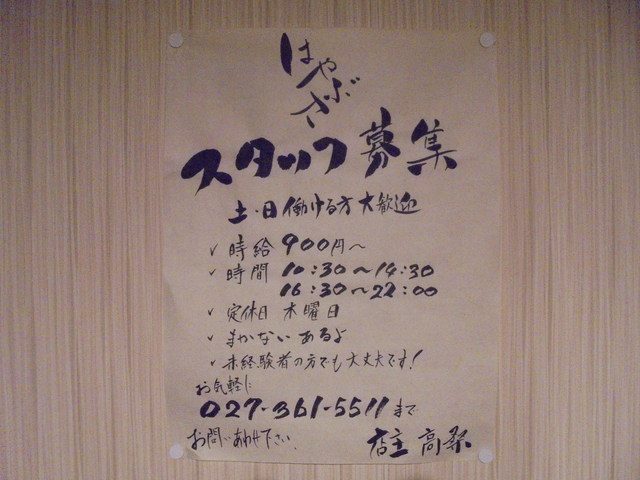 はやぶさ
スタッフ募集
土・日働ける方大歓迎
✓時給 900円～
✓時間 10:30～14:30
16:30～22:00
✓定休日 木曜日
✓まかないあるよ
✓未経験者の方でも大丈夫です!
お気軽に
027-361-5511まで
お問いあわせ下さい.
店主 高桑